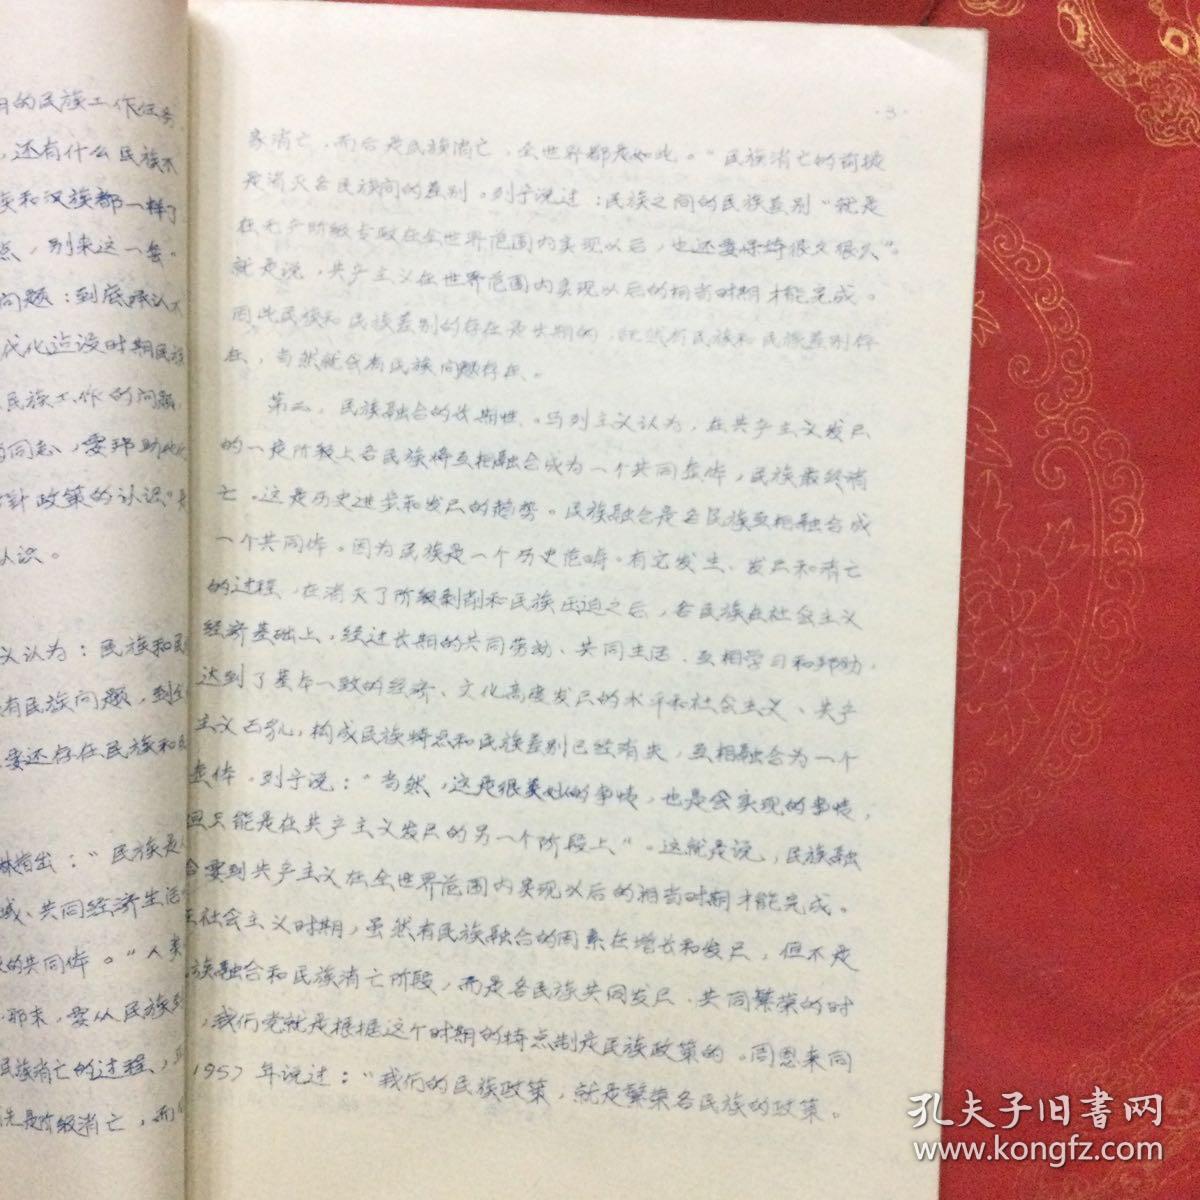 期的民族工作任务
，还有什么民族不
族和汉族都一样了
点，别来这一套"
问题：到底承认不
代化建设时期民族
民族工作的问题
的同志，要帮助他
方针政策的认识"
认识。
义认为：民族和民
有民族问题，到
要还存在民族和
林指出："民族是人
域、共同经济生活
的共同体。"人类
那末，要从民族
民族消亡的过程，
先是阶级消亡，而
·3·
家消亡，而后是民族消亡，全世界都是如此。"民族消亡的前提
是消灭各民族间的差别。列宁说过：民族之间的民族差别"就是
在无产阶级专政在全世界范围内实现以后，也还要保持很久很久"。
就是说，共产主义在世界范围内实现以后的相当时期才能完成。
因此民族和民族差别的存在是长期的，既然有民族和民族差别存
在，当然就会有民族问题存在。
第二，民族融合的长期性。马列主义认为，在共产主义发尸
的一定阶段上各民族将互相融合成为一个共同整体，民族最终消
亡。这是历史进步和发尸的趋势。民族融合是各民族互相融合成
一个共同体。因为民族是一个历史范畴。有它发生、发尸和消亡
的过程，在消灭了阶级剥削和民族压迫之后，各民族在社会主义
经济基础上，经过长期的共同劳动、共同生活、互相学习和帮助，
达到了基本一致的经济、文化高度发尸的水平和社会主义、共产
主义觉悟，构成民族特点和民族差别已经消失，互相融合为一个
整体。列宁说："当然，这是很美妙的事情，也是会实现的事情，
但只能是在共产主义发尸的另一个阶段上"。这就是说，民族融
合要到共产主义在全世界范围内实现以后的相当时期才能完成。
在社会主义时期，虽然有民族融合的因素在增长和发尸，但不是
族融合和民族消亡阶段，而是各民族共同发尸、共同繁荣的时
，我们党就是根据这个时期的特点制定民族政策的。周恩来同
1957年说过："我们的民族政策，就是繁荣各民族的政策。
孔夫子旧书网
www.kongfz.com